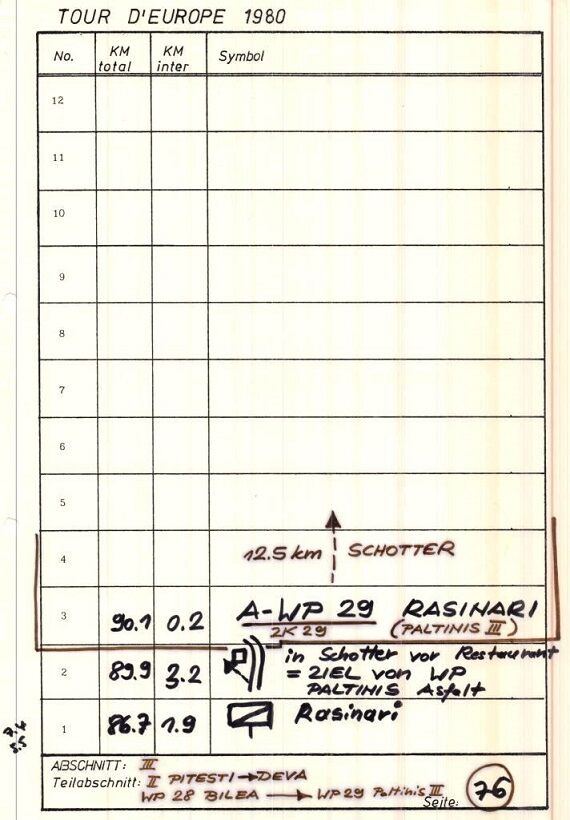 TOUR D'EUROPE 1980
No. KM total KM inter Symbol
12
11
10
9
8
7
6
5
4 12.5 km SCHOTTER
3 90.1 0.2 A-WP 29 RASINARI
ZK 29 (PALTINIS III)
2 89.9 3.2 in Schotter vor Restaurant
= ZIEL von WP
PALTINIS Asfalt
1 86.7 1.9 Rasinari
ABSCHNITT: III
Teilabschnitt: II PITESTI→DEVA
WP 28 BILEA → WP 29 Paltinis III
Seite: 76